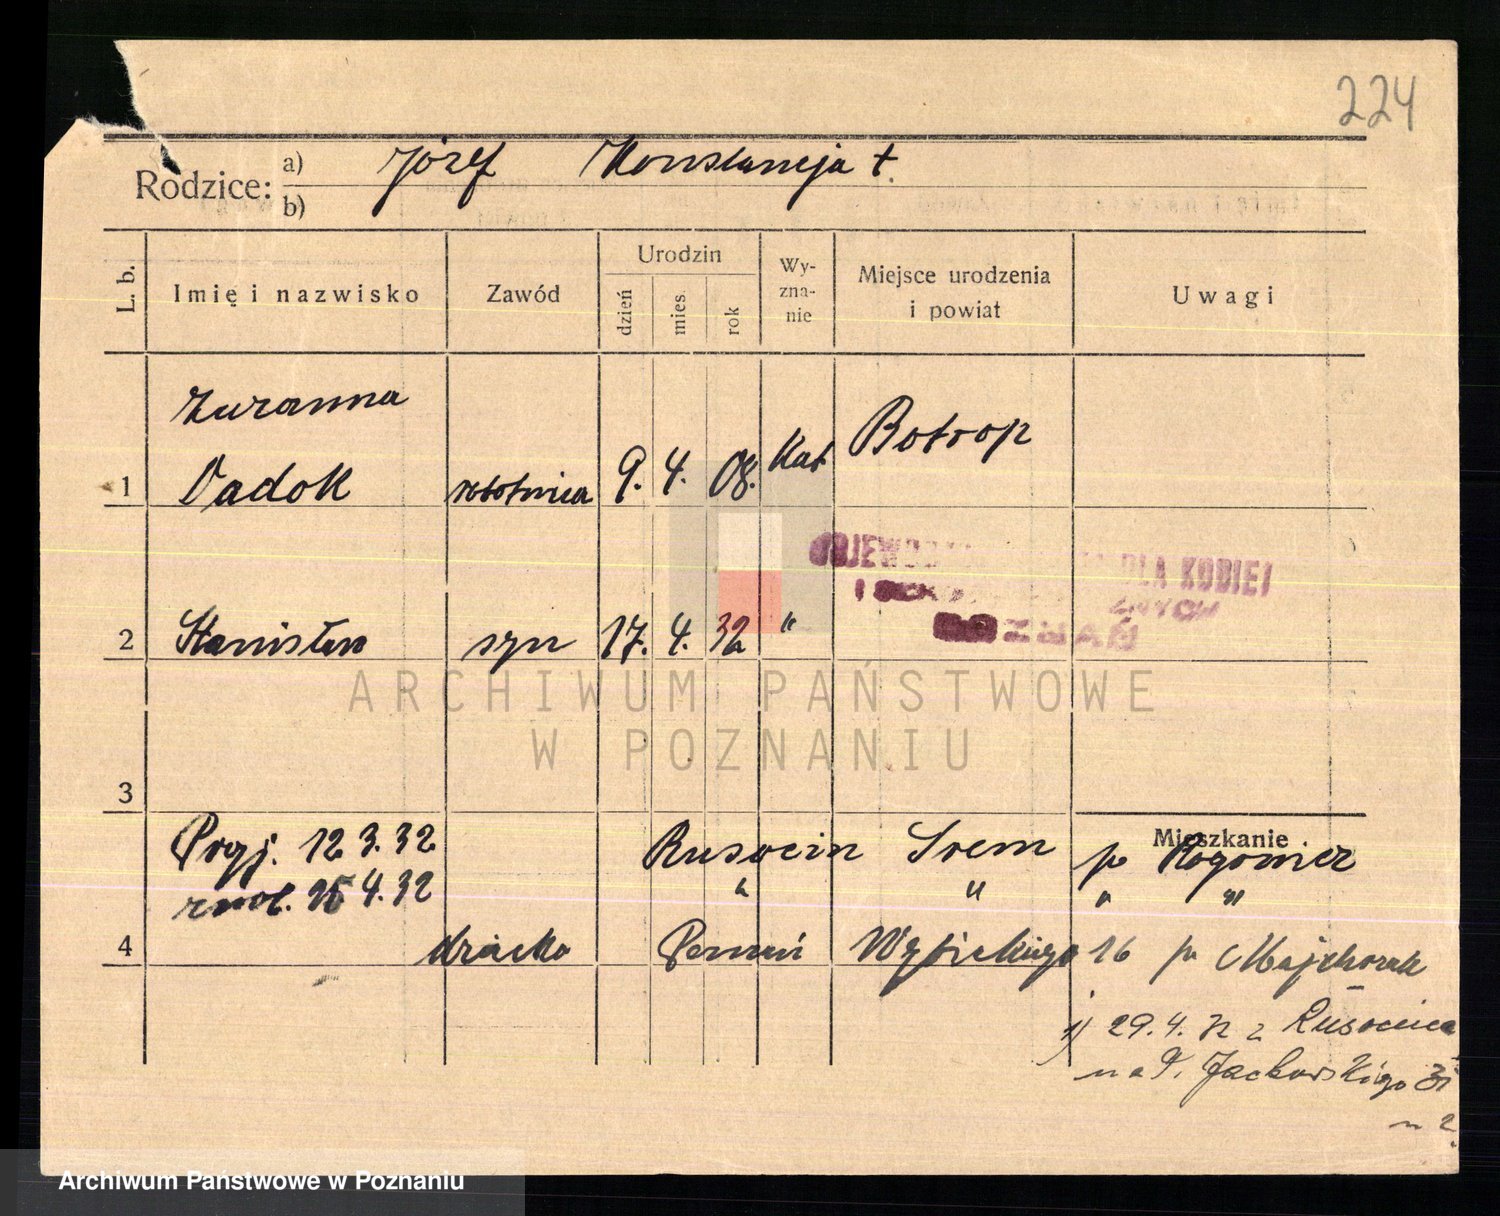 224
Rodzice: a) Józef Konstancja †.
b)
L. b.
Imię i nazwisko
Zawód
Urodzin
dzień
mies.
rok
Wy-
zna-
nie
Miejsce urodzenia
i powiat
Uwagi
Zuzanna
1 Dadok robotnica 9. 4. 08. Kat Botrop
DLA KOBIET
I
2 Stanisław syn 17. 4. 32 "
ARCHIWUM PAŃSTWOWE
W POZNANIU
3
Mieszkanie
Przj. 12 3. 32 Rusocin Śrem p Rogowicz
zwol. 25 4. 32 " " " "
4 dziecko Poznań 16 p Majchrzak
1) 29. 4. 32 z Rusocina
na P. Jackowskiego 31
m 2
Archiwum Państwowe w Poznaniu